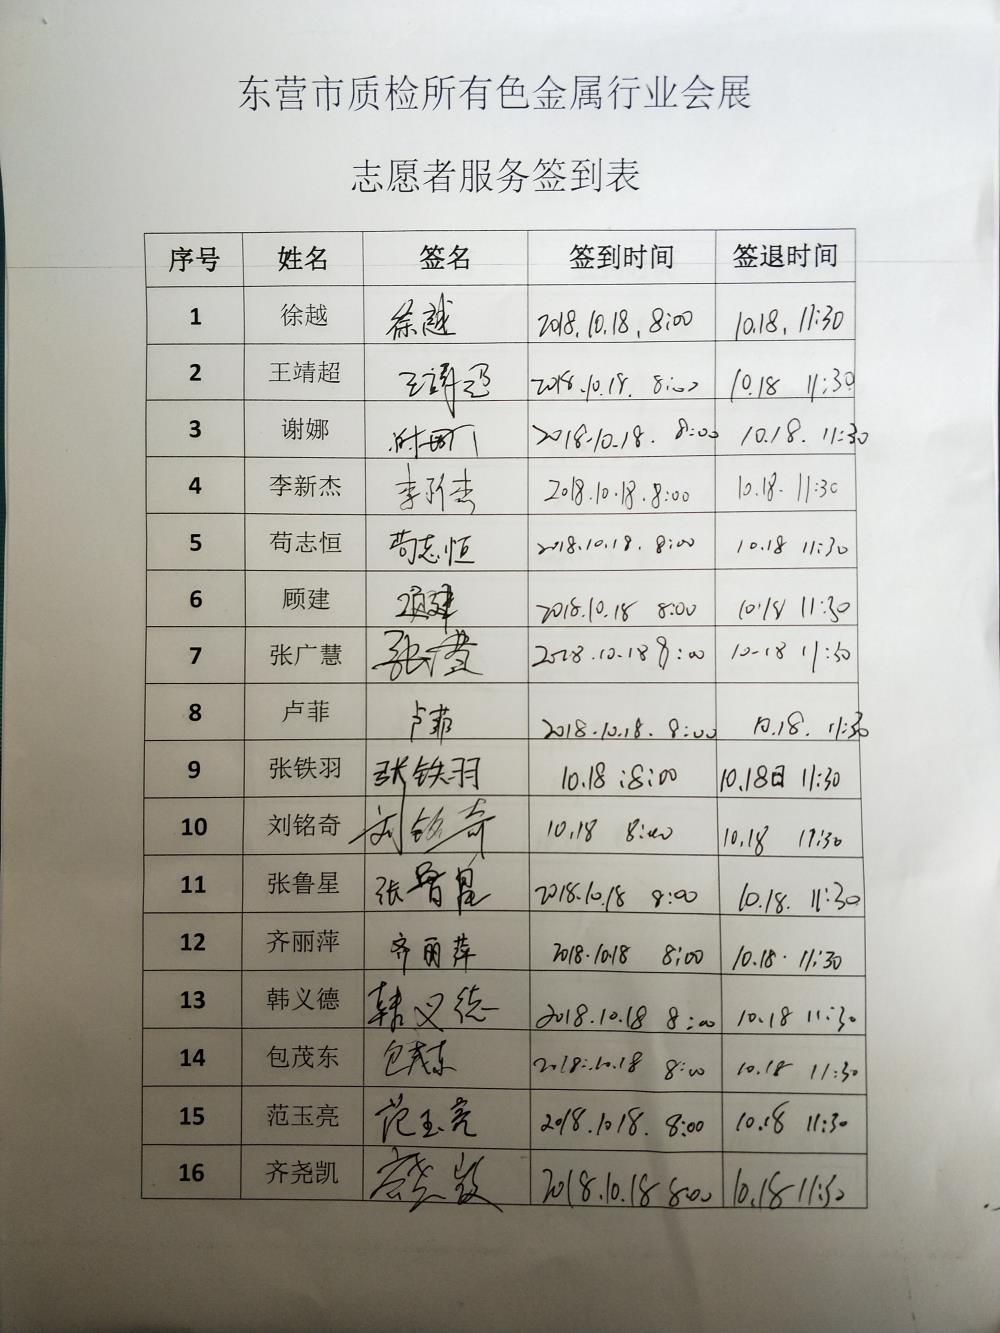 东营市质检所有色金属行业会展
志愿者服务签到表
序号 姓名 签名 签到时间 签退时间
1 徐越 徐越 2018.10.18. 8:00 10.18. 11:30
2 王靖超 王靖超 2018.10.18. 8:00 10.18 11:30
3 谢娜 2018.10.18. 8:00 10.18. 11:30
4 李新杰 李新杰 2018.10.18.8:00 10.18. 11:30
5 苟志恒 苟志恒 2018.10.18. 8:00 10.18 11:30
6 顾建 顾建 2018.10.18 8:00 10.18 11:30
7 张广慧 2018.10.18 8:00 10-18 11:30
8 卢菲 卢菲 2018.10.18. 8:00 10.18. 11:30
9 张铁羽 张铁羽 10.18 :8:00 10.18日 11:30
10 刘铭奇 刘铭奇 10.18 8:00 10.18 11:30
11 张鲁星 张鲁星 2018.10.18 8:00 10.18. 11:30
12 齐丽萍 齐丽萍 2018.10.18 8:00 10.18. 11:30
13 韩义德 韩义德 2018.10.18 8:00 10.18 11:30
14 包茂东 包茂东 2018.10.18 8:00 10.18 11:30
15 范玉亮 范玉亮 2018.10.18. 8:00 10.18 11:30
16 齐尧凯 2018.10.18 8:00 10.18 11:30